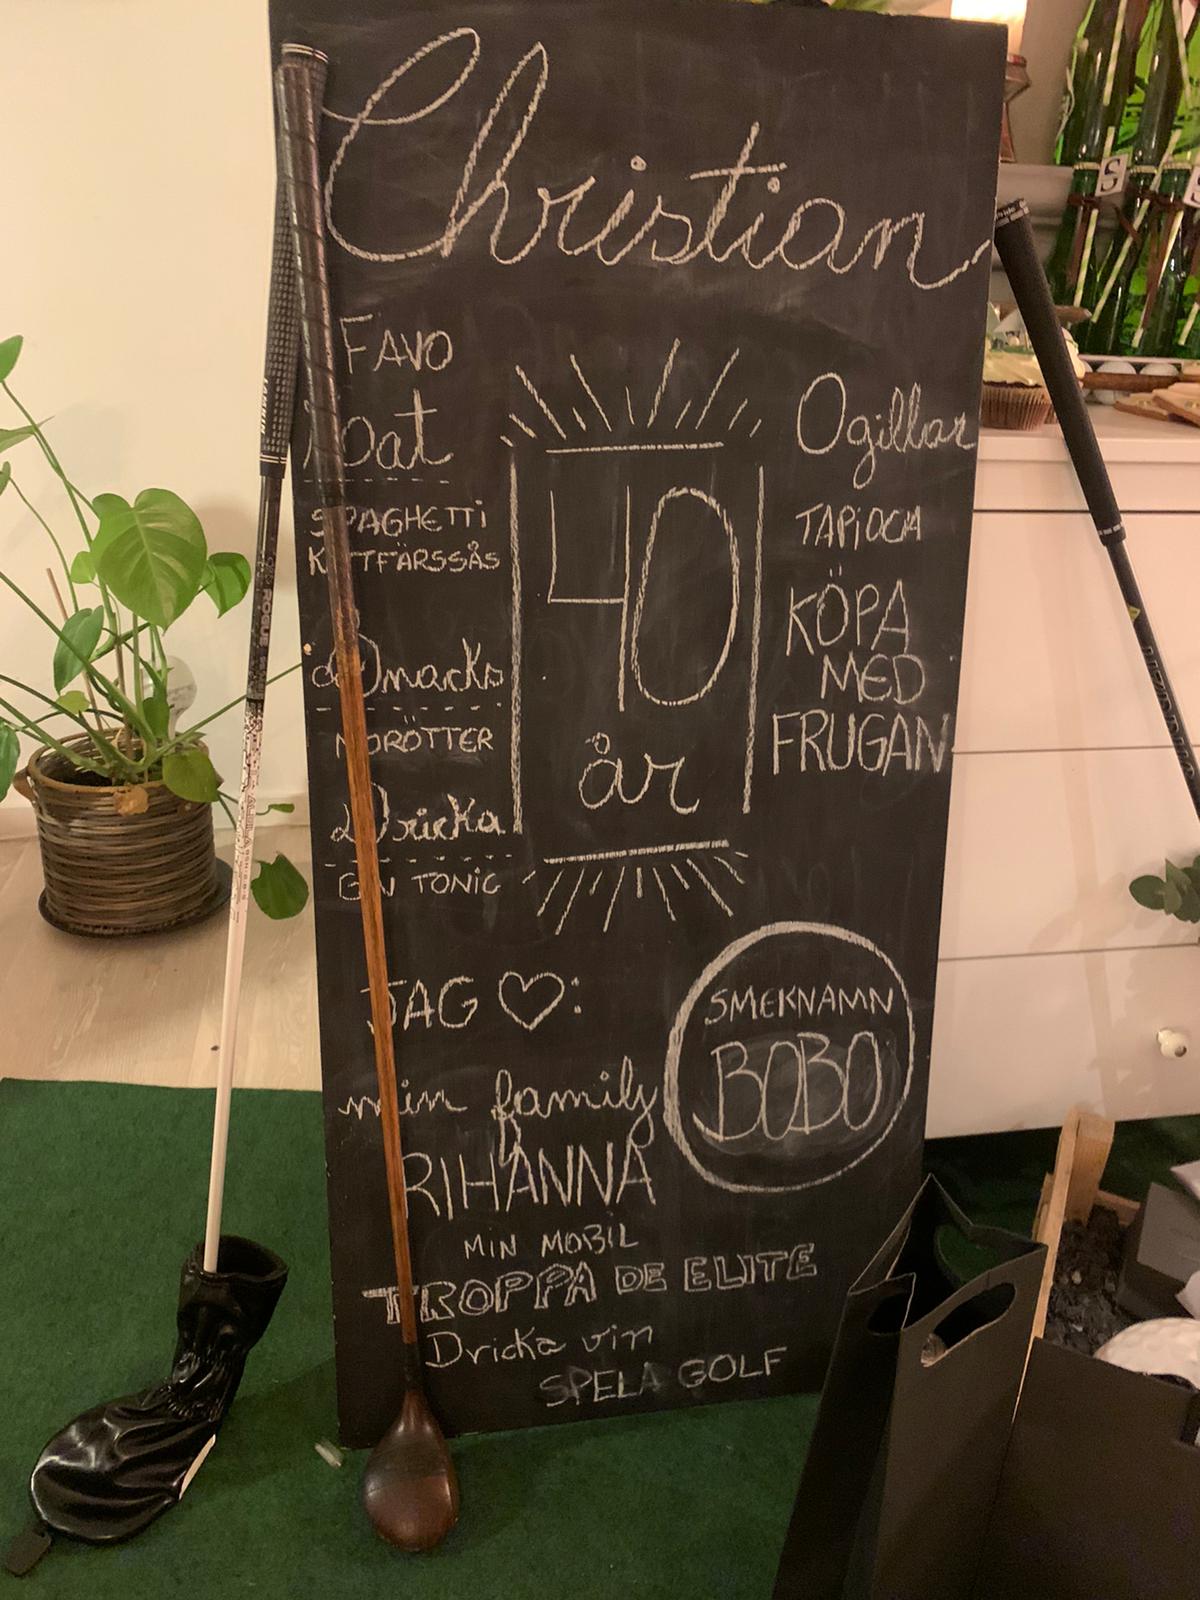 Christian
FAVO
Mat
SPAGHETTI
KÖTTFÄRSSÅS
Snacks
MORÖTTER
Dricka
GIN TONIC
40
år
Ogillar
TAPIOCA
KÖPA
MED
FRUGAN
SMEKNAMN
BOBO
JAG ♡:
min family
RIHANNA
MIN MOBIL
TROPPA DE ELITE
Dricka vin
SPELA GOLF
ROGUE
S